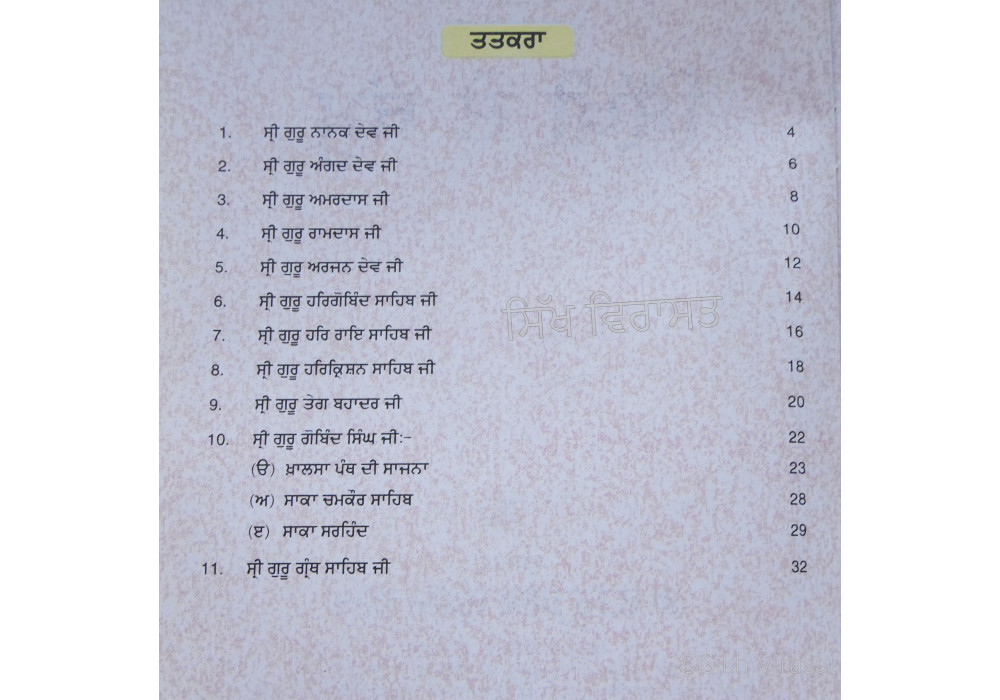 ਤਤਕਰਾ
1. ਸ੍ਰੀ ਗੁਰੂ ਨਾਨਕ ਦੇਵ ਜੀ 4
2. ਸ੍ਰੀ ਗੁਰੂ ਅੰਗਦ ਦੇਵ ਜੀ 6
3. ਸ੍ਰੀ ਗੁਰੂ ਅਮਰਦਾਸ ਜੀ 8
4. ਸ੍ਰੀ ਗੁਰੂ ਰਾਮਦਾਸ ਜੀ 10
5. ਸ੍ਰੀ ਗੁਰੂ ਅਰਜਨ ਦੇਵ ਜੀ 12
6. ਸ੍ਰੀ ਗੁਰੂ ਹਰਿਗੋਬਿੰਦ ਸਾਹਿਬ ਜੀ 14
ਸਿੱਖ ਵਿਰਾਸਤ
7. ਸ੍ਰੀ ਗੁਰੂ ਹਰਿ ਰਾਇ ਸਾਹਿਬ ਜੀ 16
8. ਸ੍ਰੀ ਗੁਰੂ ਹਰਿਕ੍ਰਿਸ਼ਨ ਸਾਹਿਬ ਜੀ 18
9. ਸ੍ਰੀ ਗੁਰੂ ਤੇਗ ਬਹਾਦਰ ਜੀ 20
10. ਸ੍ਰੀ ਗੁਰੂ ਗੋਬਿੰਦ ਸਿੰਘ ਜੀ:- 22
(ੳ) ਖ਼ਾਲਸਾ ਪੰਥ ਦੀ ਸਾਜਨਾ 23
(ਅ) ਸਾਕਾ ਚਮਕੌਰ ਸਾਹਿਬ 28
(ੲ) ਸਾਕਾ ਸਰਹਿੰਦ 29
11. ਸ੍ਰੀ ਗੁਰੂ ਗ੍ਰੰਥ ਸਾਹਿਬ ਜੀ 32